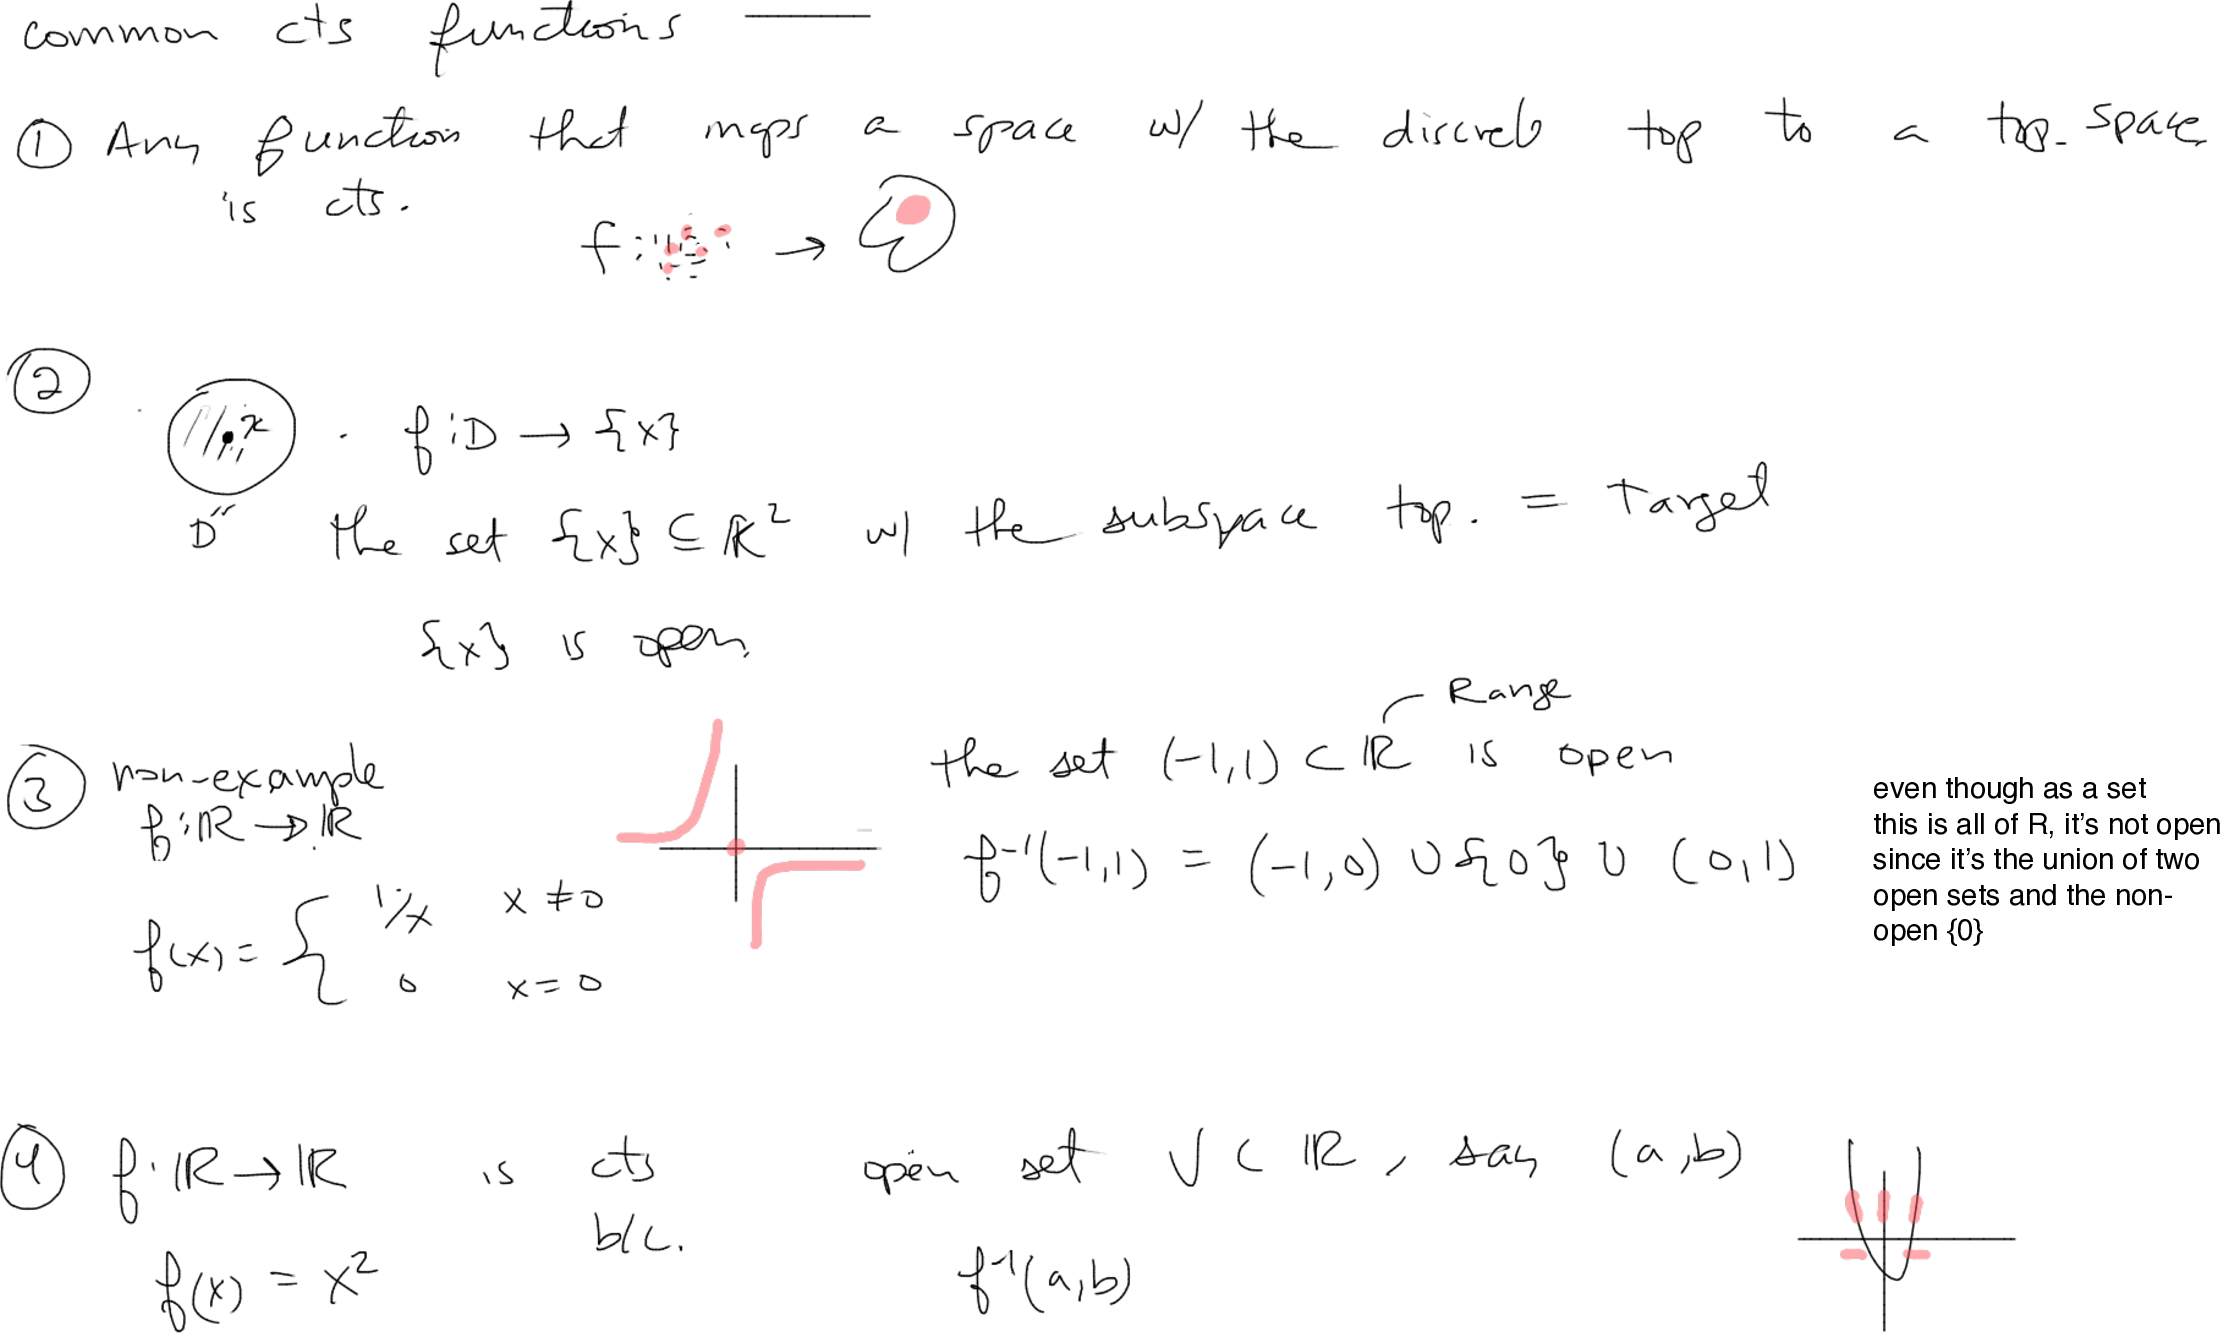 common cts functions
① Any function that maps a space w/ the discrete top to a top. space
is cts.
f: →
②
x
f: D → {x}
D
the set {x} ⊆ ℝ² w/ the subspace top. = Target
{x} is open.
Range
③ non-example
the set (-1,1) ⊂ ℝ is open
f: ℝ → ℝ
f⁻¹(-1,1) = (-1,0) ∪ {0} ∪ (0,1)
even though as a set
this is all of R, it's not open
since it's the union of two
open sets and the non-
open {0}
f(x) = { 1/x x ≠ 0
0 x = 0
④ f: ℝ → ℝ is cts open set V ⊂ ℝ, say (a,b)
b/c.
f(x) = x² f⁻¹(a,b)